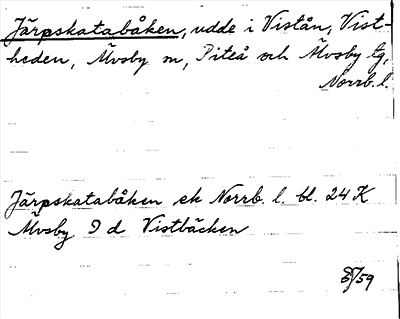 Järpskatabåken, udde i Vistån, Vist-
heden, Älvsby sn, Piteå och Älvsby tg,
Norrb. l.
Järpskatabåken ek Norrb. l. bl. 24 K
Älvsby I d Vistbäcken
/59